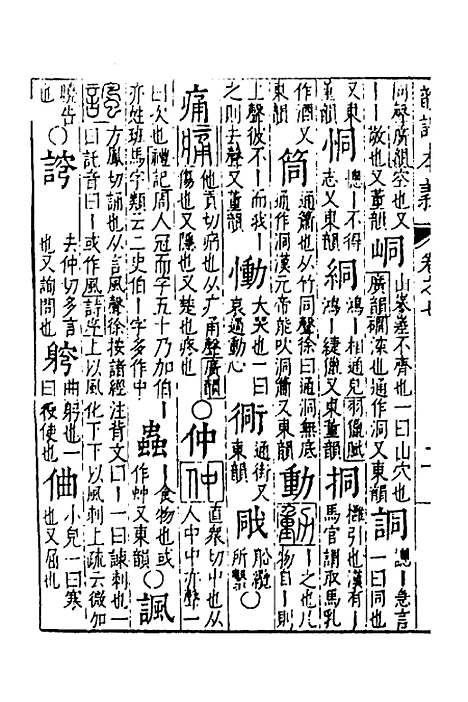 韻譜本義 卷之七
同聲廣韻空也又
丨丨敬也又董韻
峒
山峯不齊也一曰山穴也
廣韻磵深也通作洞又東韻
詷
諰丨急言
一曰同也
又東
董韻
恫
憁丨不得
志又東韻
絧
鴻丨相通皃羽獵賦
鴻丨緁獵又東董韻
挏
攤引也漢有
丨馬官謂取馬乳
作酒又
東韻
筒
通簫也从竹同聲徐曰通洞無底
通作洞漢元帝能吹洞簫又東韻
動
丨之也凡
物自丨則
上聲彼不丨而我丨
之則去聲又董韻
慟
大哭也一曰
哀過動心
衕
通街又
東韻
戙
船纜
所繫
○
痛
他貢切病也从疒甬聲廣韻
傷也又隱也又楚也疼也
○仲
直衆切中也从
人中中亦聲一
曰次也禮記周人冠而字五十乃加伯丨
亦姓班馬字類云二史伯丨字多作中
蟲
丨食物也或
作蚛又東韻
○諷
方鳳切誦也从言風聲徐按諸經注背文曰丨一曰諫刺也一
曰託音曰丨或作風詩序上以風化下下以風刺上疏云微加
曉告
也
○
去仲切多言
也又詢問也
曲躬也一
曰夜使也
小皃一曰寒
也又屈也